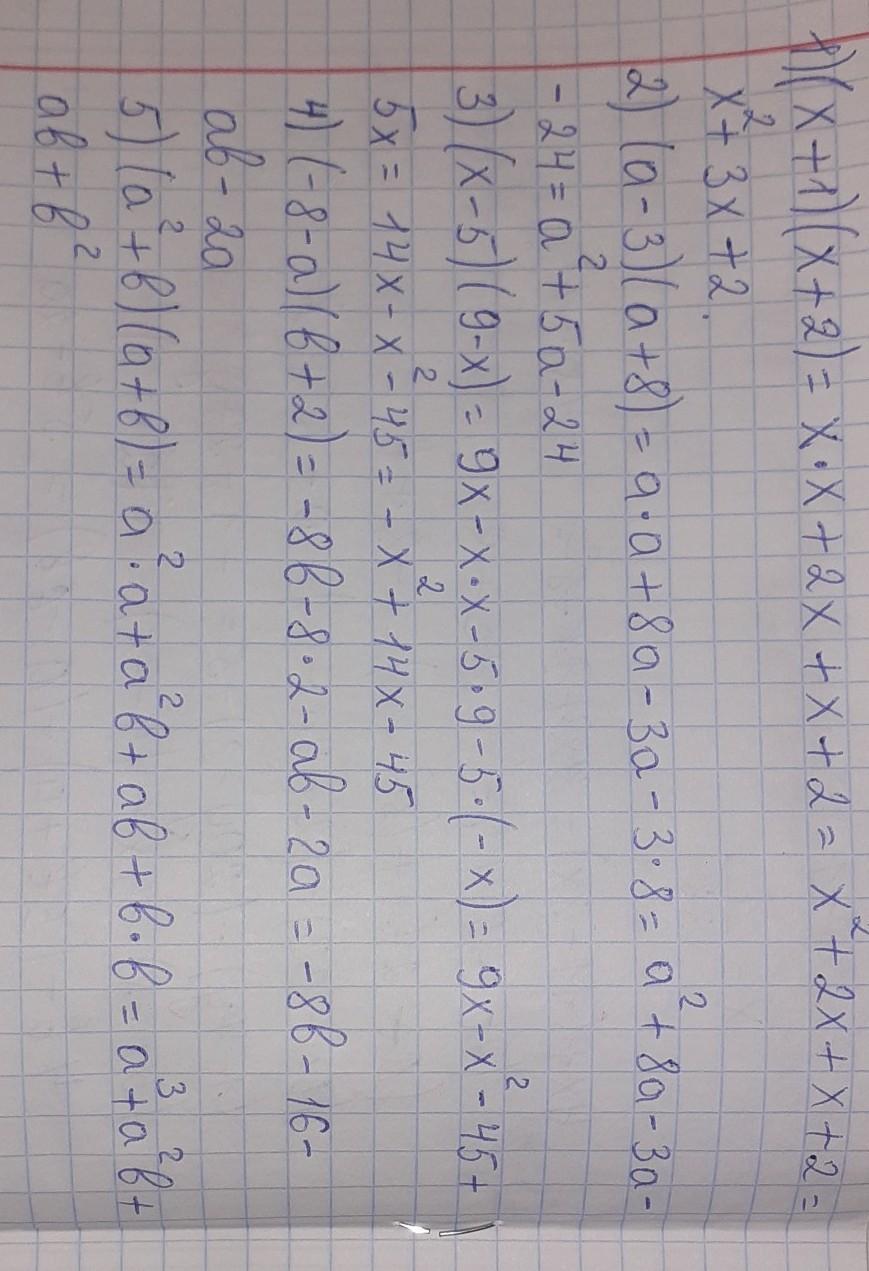 1) (x+1)(x+2)= x·x+2x+x+2= x²+2x+x+2=
x²+3x+2.
2) (a-3)(a+8)= a·a+8a-3a-3·8= a²+8a-3a-
-24= a²+5a-24
3) (x-5)(9-x)= 9x-x·x-5·9-5·(-x)= 9x-x²-45+
5x= 14x-x²-45= -x²+14x-45
4) (-8-a)(b+2)= -8b-8·2-ab-2a= -8b-16-
ab-2a
5) (a²+b)(a+b)= a²·a+a²b+ab+b·b= a³+a²b+
ab+b²